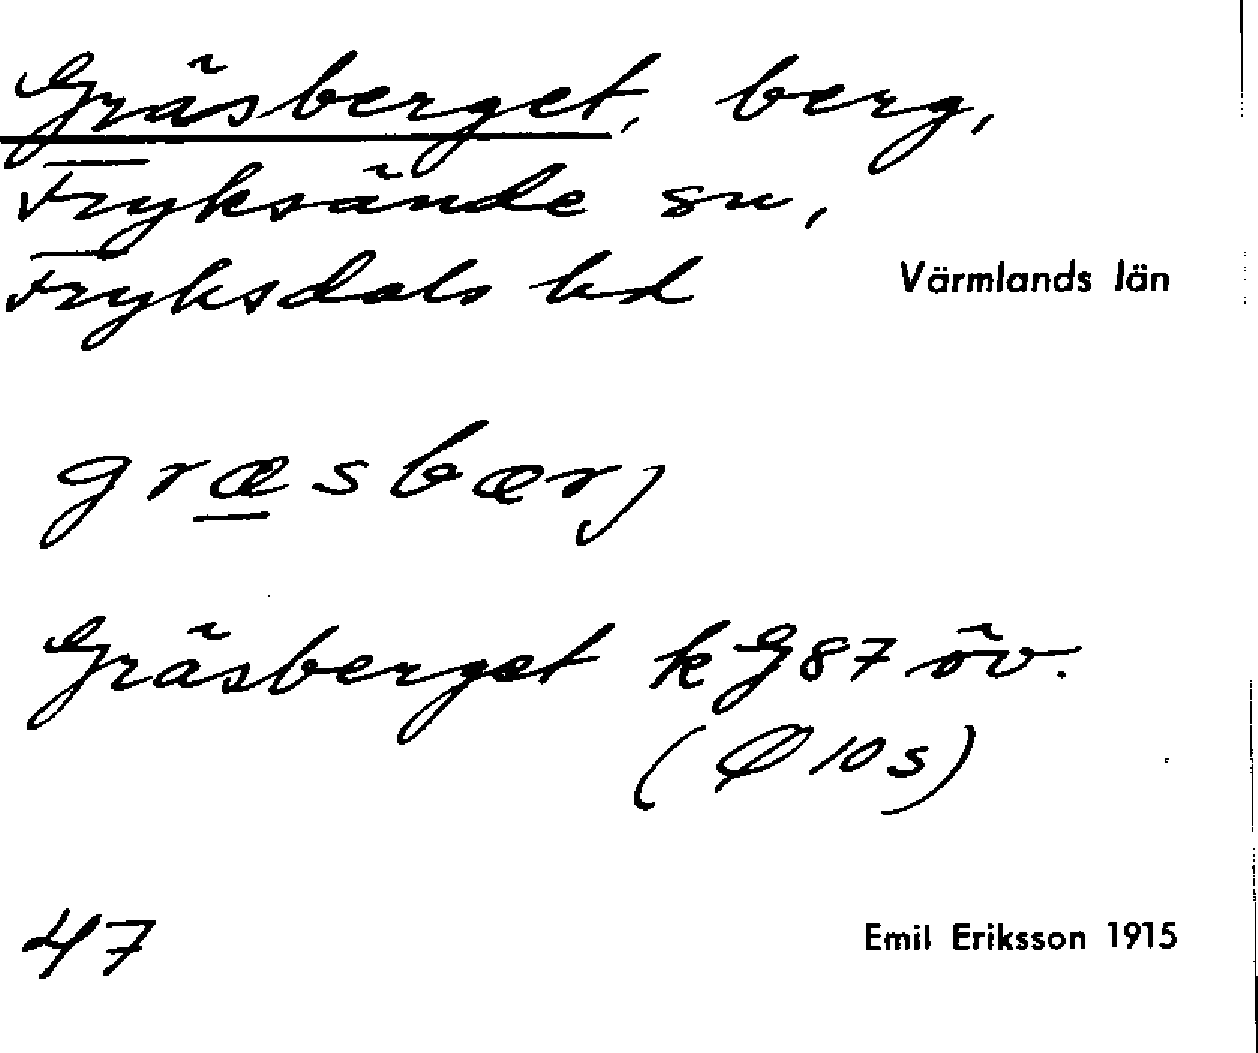 Gräsberget, berg,
Fryksände sn,
Fryksdals hd
Värmlands län
græsbærj
Gräsberget kG87 öv.
(Ø 10s)
47
Emil Eriksson 1915